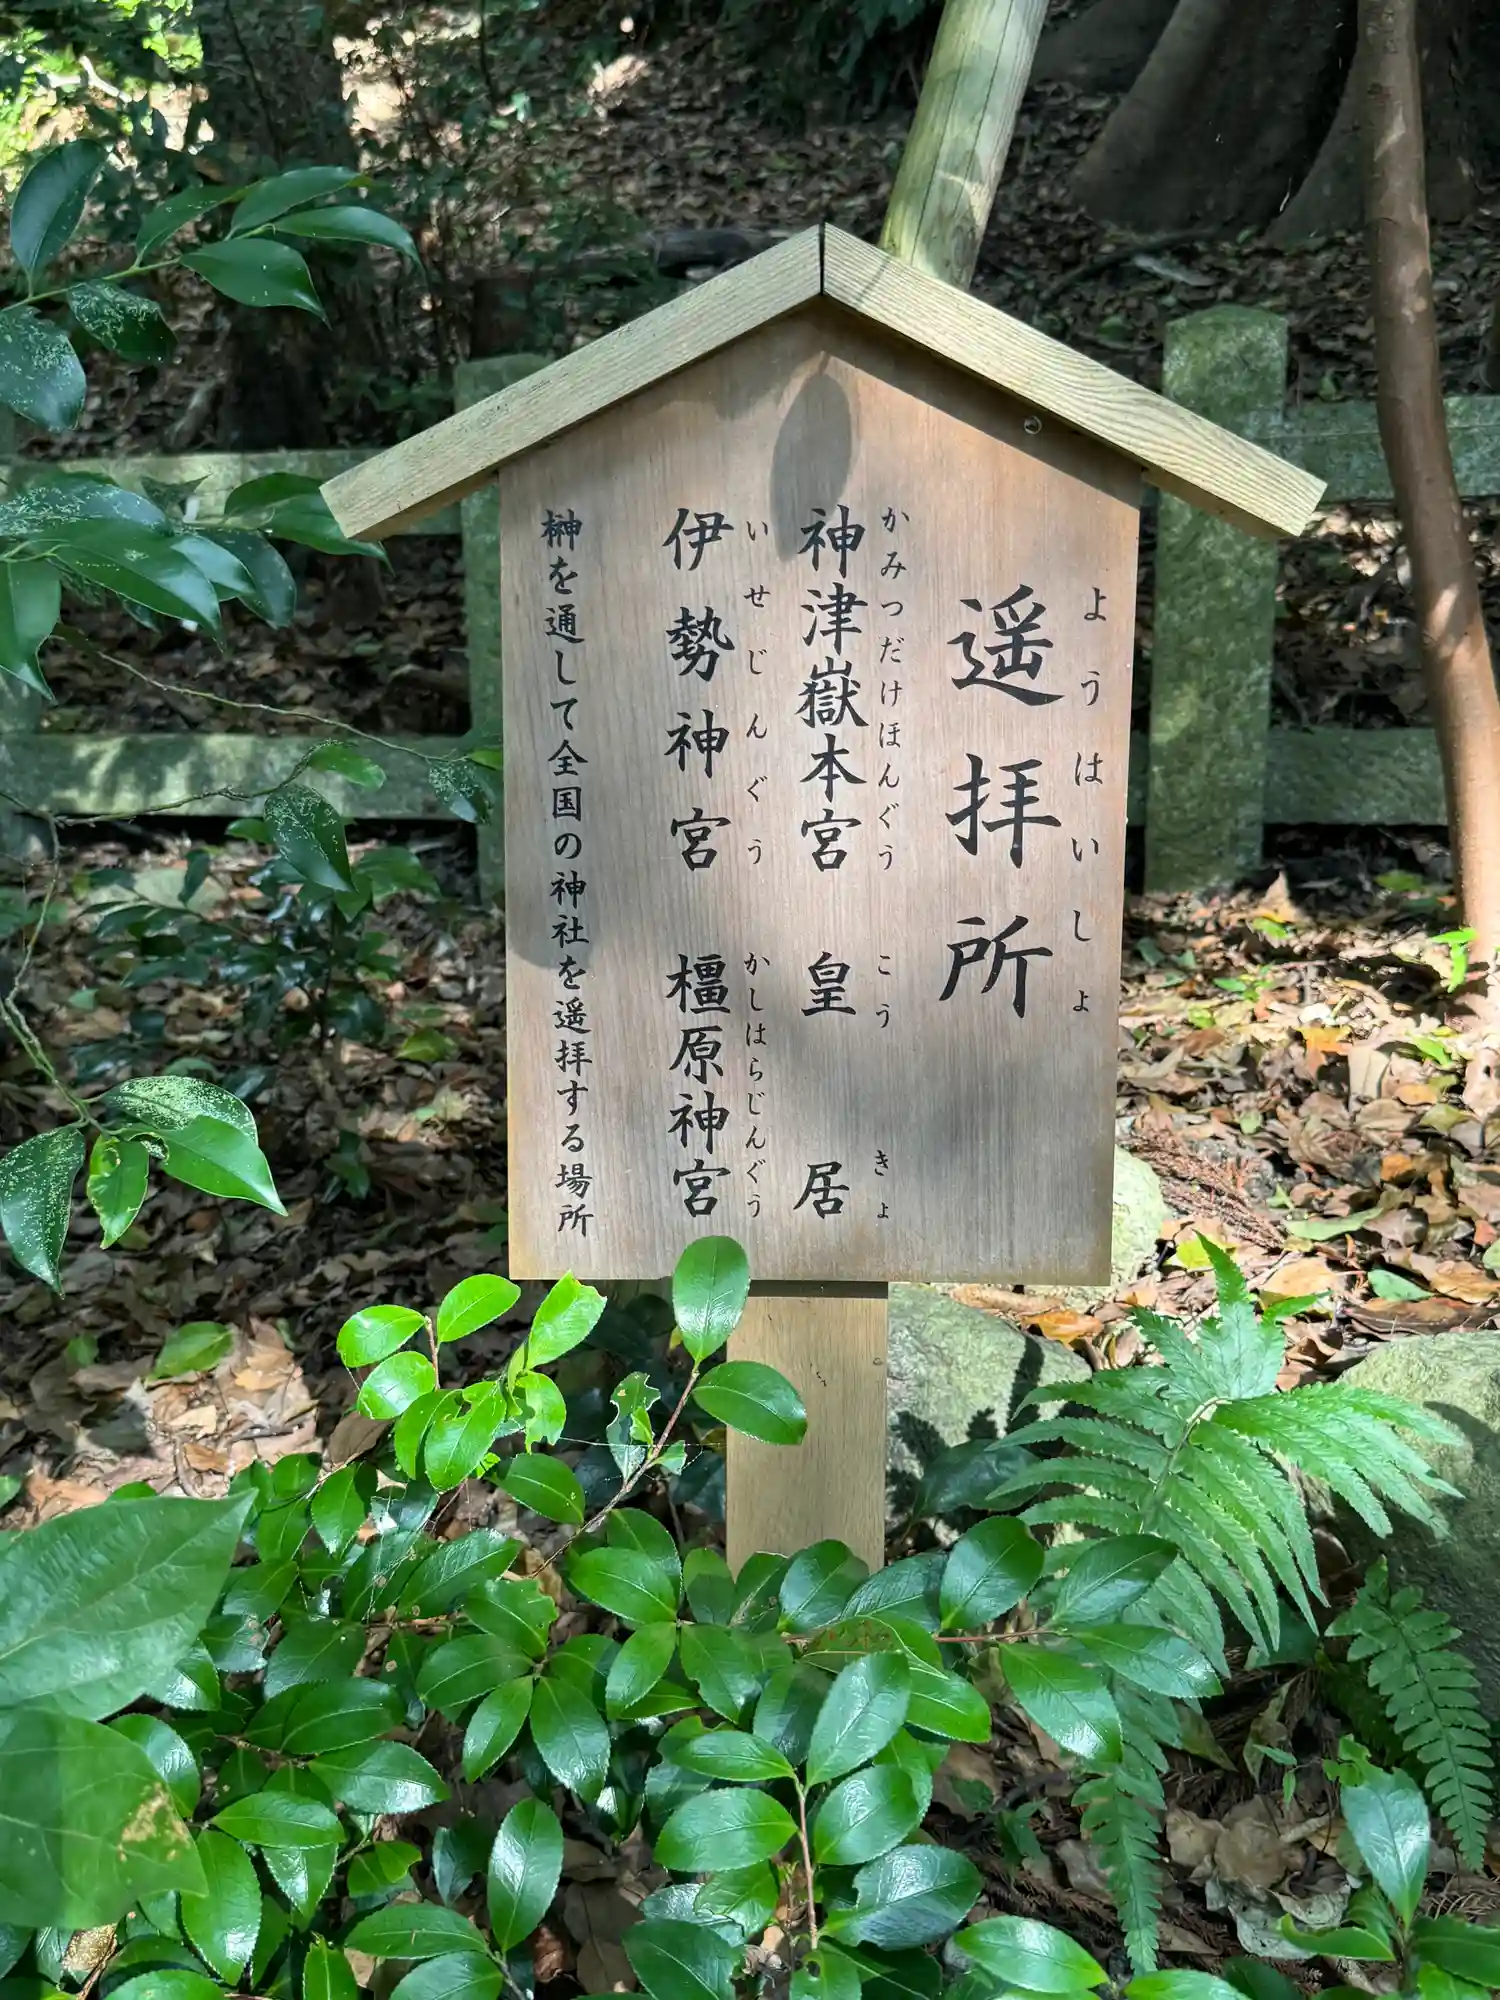 遥拝所
ようはいしょ
神津嶽本宮 皇居
かみつだけほんぐう こうきょ
伊勢神宮 橿原神宮
いせじんぐう かしはらじんぐう
榊を通して全国の神社を遥拝する場所